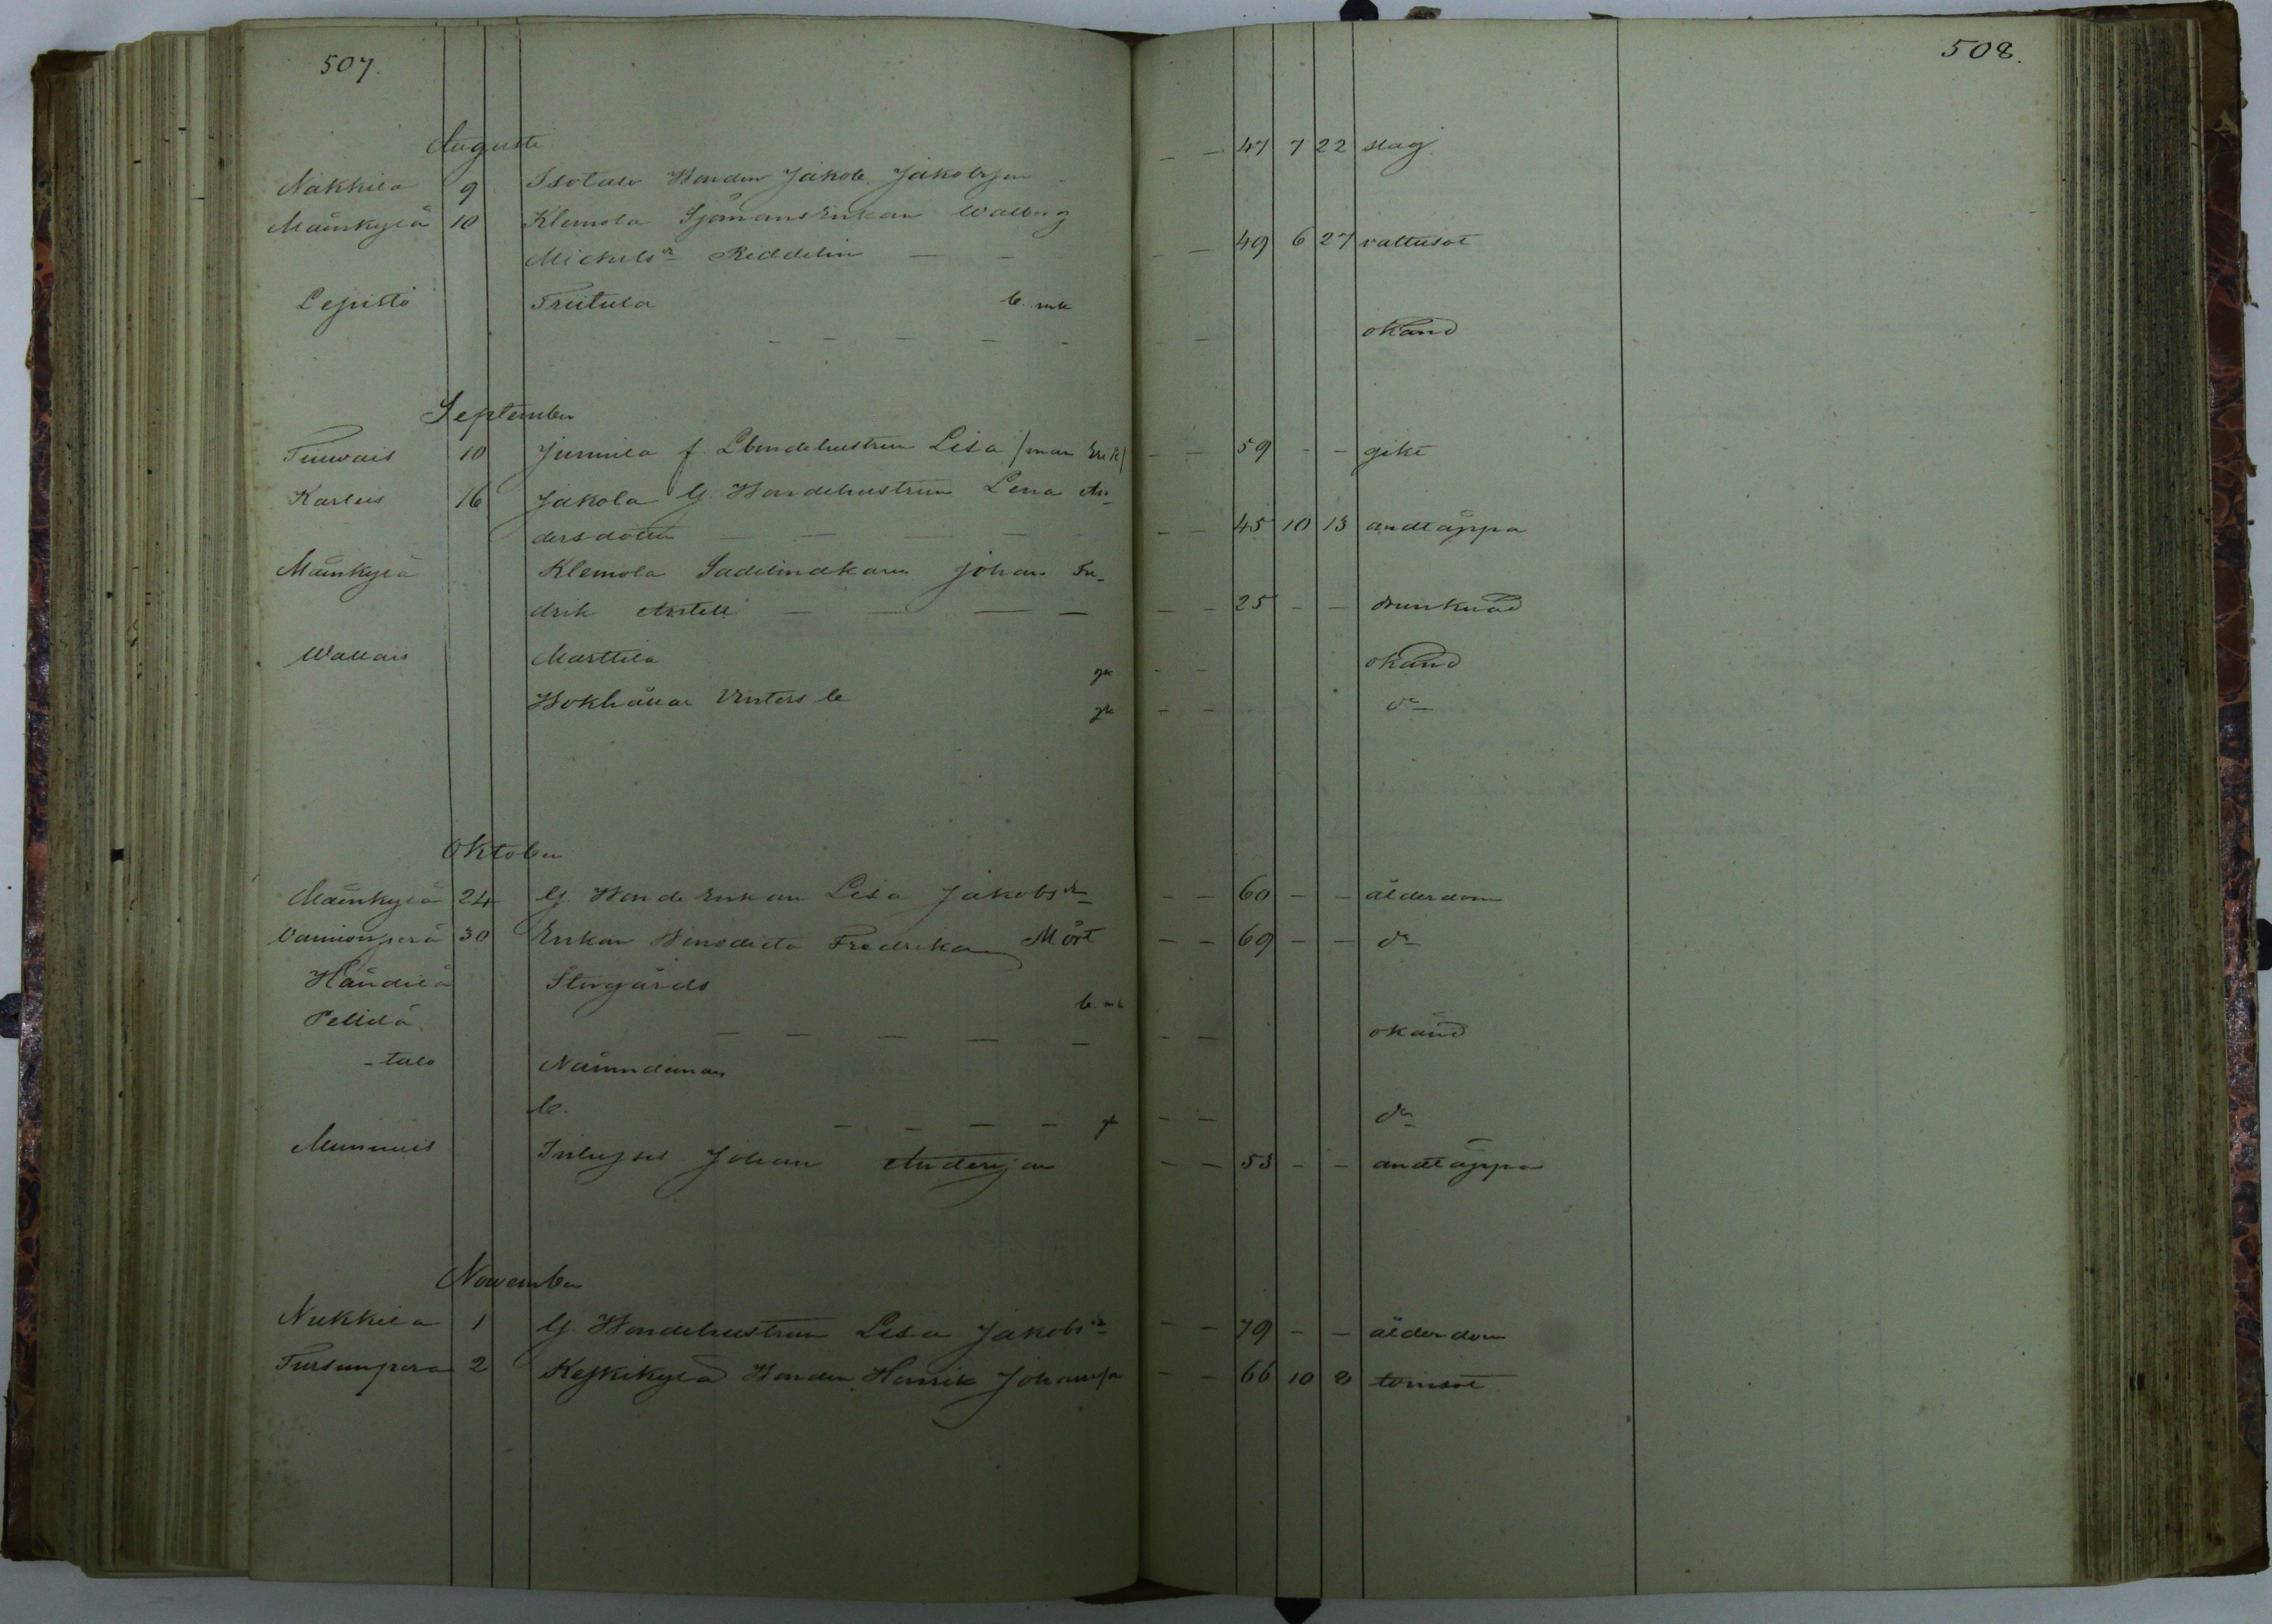 507.
508.
Augusti
47 7 22 slag
Nakkila 9 Isotalo Bonden Jakob Jakobsson
Mäenkylä 10 Klemola Sjömans Enkan Walborg
Mickelsdr Reddelin — — — — — 49 6 27 vattusot
Lepistö Friitula b. mk
— — — — — — — okänd
September
Tuuwais 10 Junnila f. Lbondehustrun Lisa /man Erik/ — — 59 — — gikt
Karlus 16 Jakola G. Bondehustrun Lena An-
dersdotter — — — — — — 45 10 13 andtäppa
Mäenkylä Klemola Sadelmakaren Johan Fre-
drik Antell — — — — — — 25 — — drunknad
Wallais Marttila gk — — okänd
Bokhållar Vinters b gk — — do
Oktober
Mäenkylä 24 G. Bonde Enkan Lisa Jakobsdr — — 60 — — ålderdom
Vainionperä 30 Enkan Benedicta Fredrika Mört — — 69 — — do
Händilä Storgårds b. mk
Pellilä — — — — — — — okänd
-talo Nämndeman
b. — — — — — — do
Munnuis Inhyses Johan Andersson — — 53 — — andtäppa
November
Nukkila 1 G. Bondehustrun Lisa Jakobsdr — — 79 — — ålderdom
Tursunpera 2 Keskikylä Bonden Henrik Johansson — — 66 10 8 torrsot